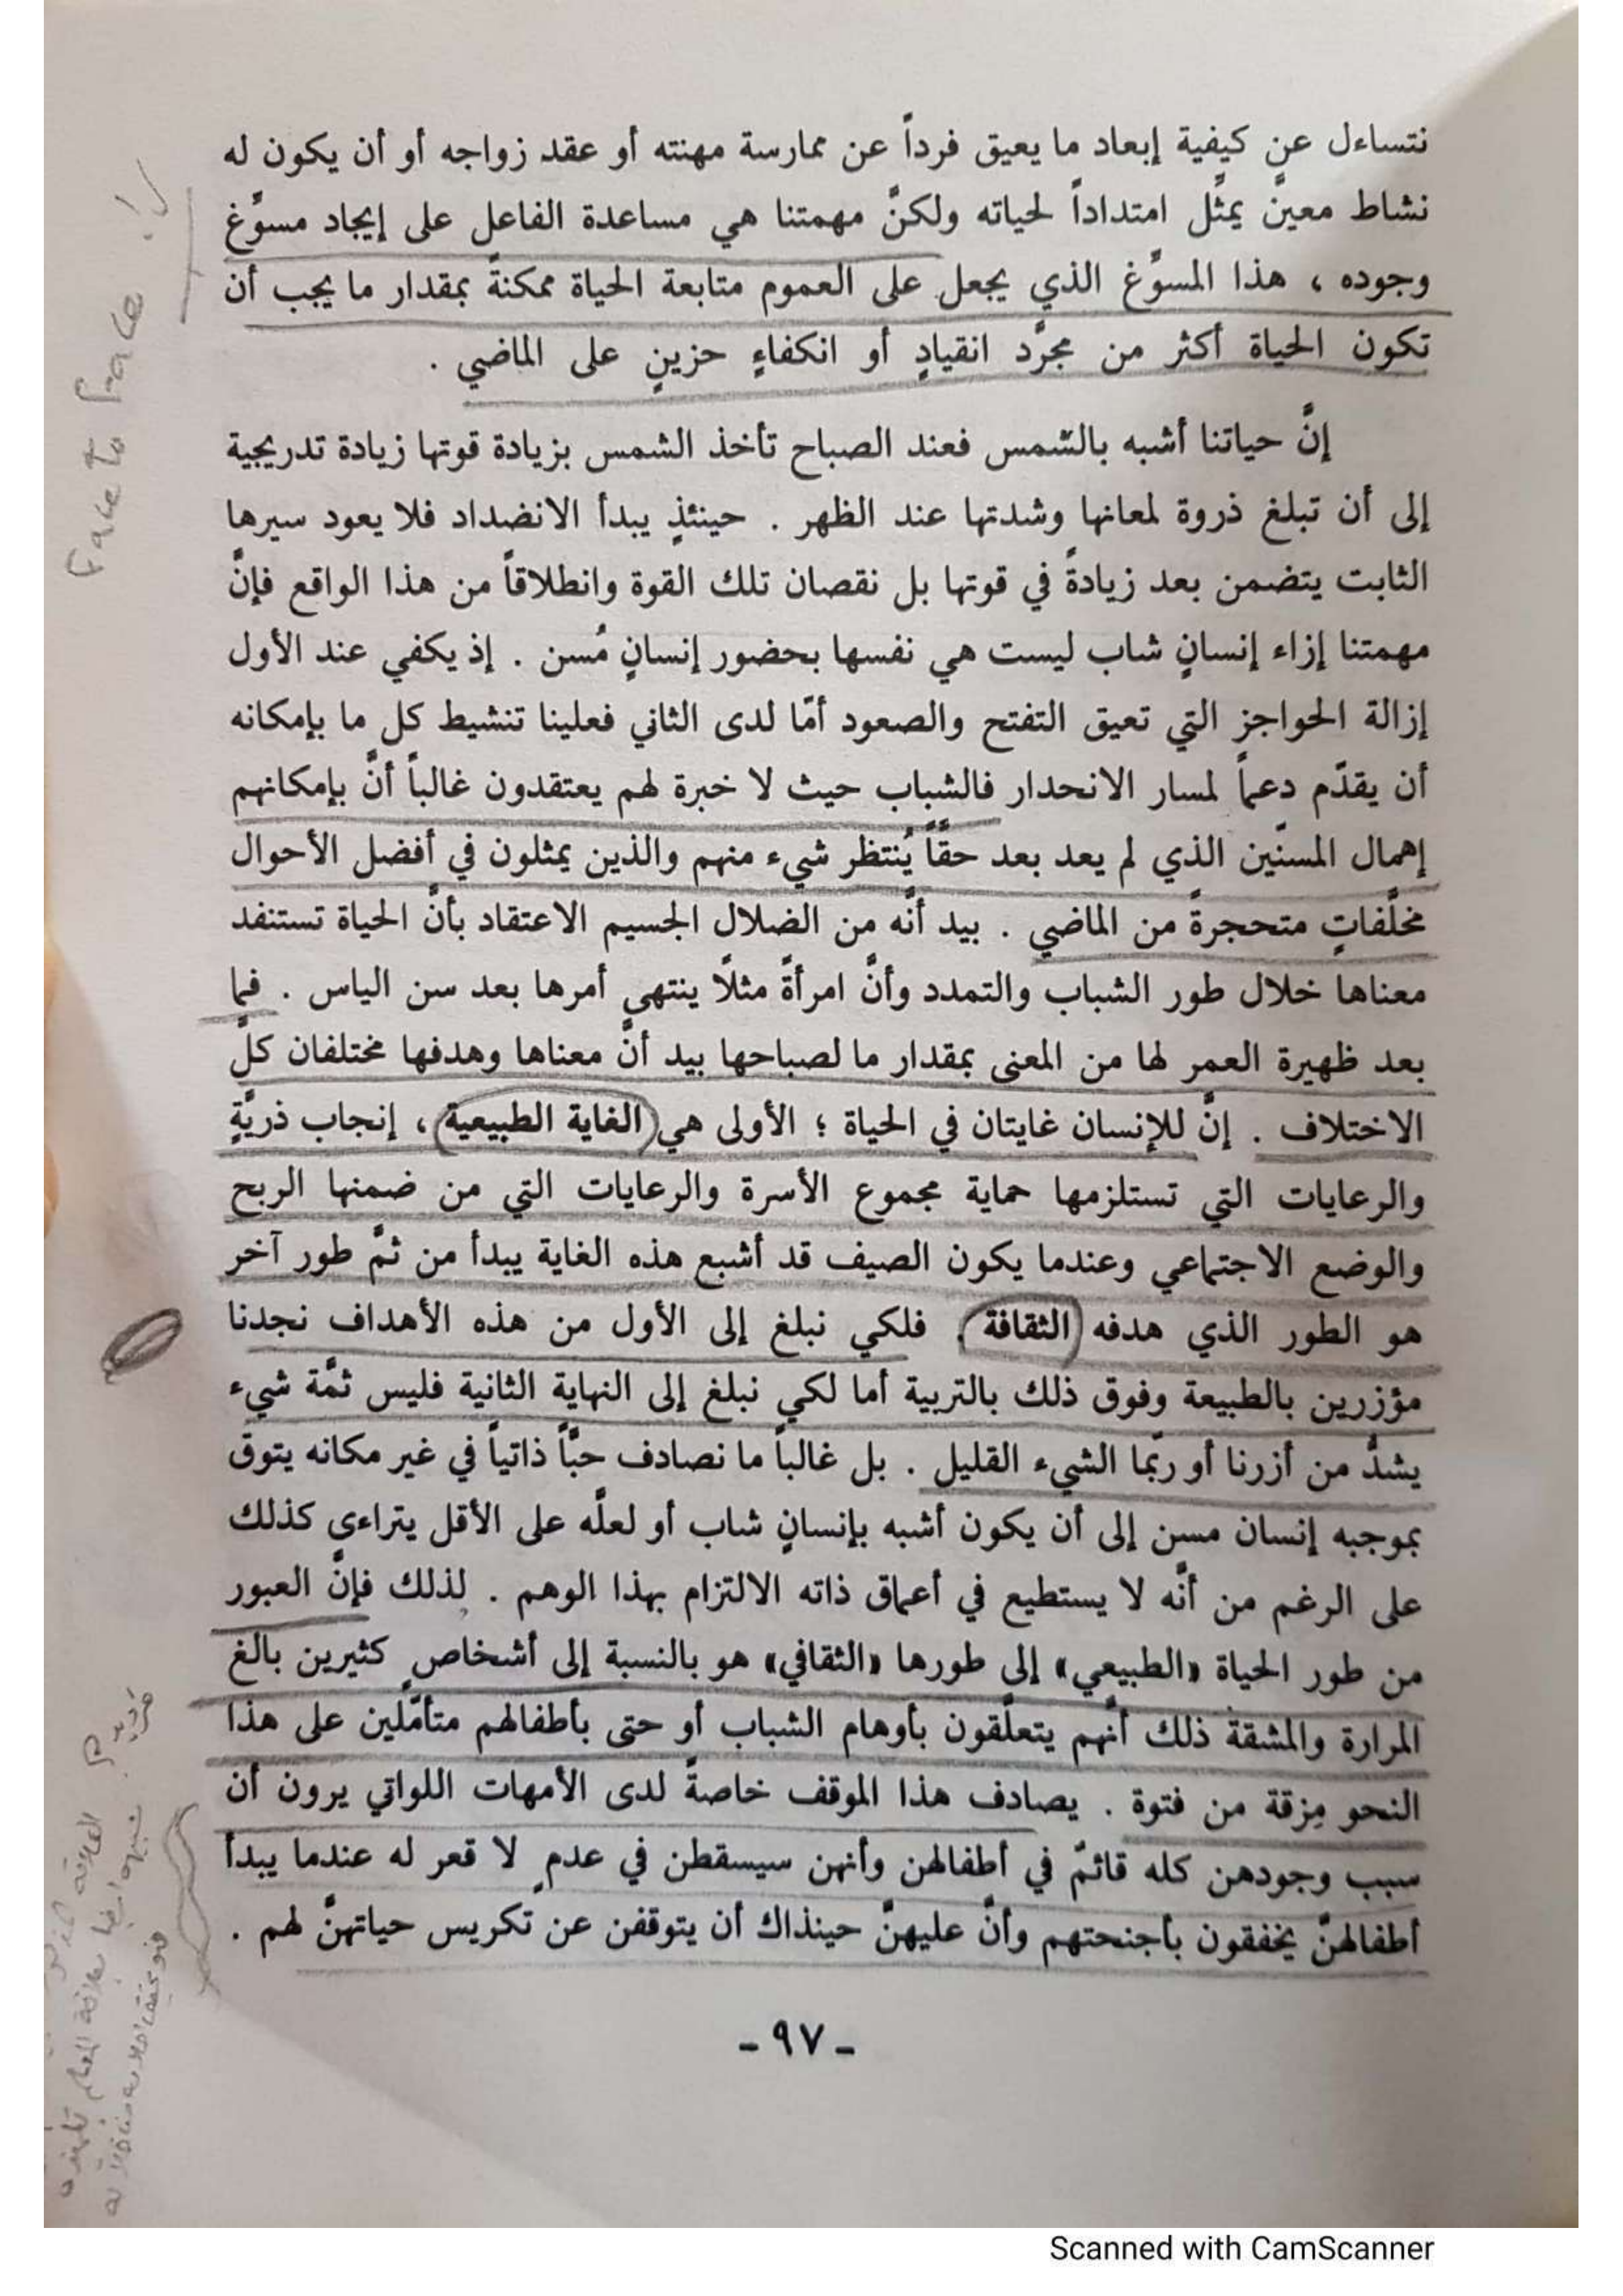 نتساءل عن كيفية إبعاد ما يعيق فرداً عن ممارسة مهنته أو عقد زواجه أو أن يكون له
نشاط معينّ يمثِّل امتداداً لحياته ولكنَّ مهمتنا هي مساعدة الفاعل على إيجاد مسوَّغ
وجوده ، هذا المسوَّغ الذي يجعل على العموم متابعة الحياة ممكنةً بمقدار ما يجب أن
تكون الحياة أكثر من مجرَّد انقيادٍ أو انكفاءٍ حزينٍ على الماضي .
إنَّ حياتنا أشبه بالشّمس فعند الصباح تأخذ الشمس بزيادة قوتها زيادة تدريجية
إلى أن تبلغ ذروة لمعانها وشدتها عند الظهر . حينئذٍ يبدأ الانضداد فلا يعود سيرها
الثابت يتضمن بعد زيادةً في قوتها بل نقصان تلك القوة وانطلاقاً من هذا الواقع فإنَّ
مهمتنا إزاء إنسانٍ شاب ليست هي نفسها بحضور إنسانٍ مُسن . إذ يكفي عند الأول
إزالة الحواجز التي تعيق التفتح والصعود أمّا لدى الثاني فعلينا تنشيط كل ما بإمكانه
أن يقدّم دعماً لمسار الانحدار فالشباب حيث لا خبرة لهم يعتقدون غالباً أنَّ بإمكانهم
إهمال المسنّين الذي لم يعد بعد حقّاً يُنتظر شيء منهم والذين يمثلون في أفضل الأحوال
مخلَّفاتٍ متحجرةً من الماضي . بيد أنَّه من الضلال الجسيم الاعتقاد بأنَّ الحياة تستنفد
معناها خلال طور الشباب والتمدد وأنَّ امرأةً مثلاً ينتهي أمرها بعد سن الياس . فما
بعد ظهيرة العمر لها من المعنى بمقدار ما لصباحها بيد أنَّ معناها وهدفها مختلفان كلَّ
الاختلاف . إنَّ للإنسان غايتان في الحياة ؛ الأولى هي الغاية الطبيعية ، إنجاب ذريَّةٍ
والرعايات التي تستلزمها حماية مجموع الأسرة والرعايات التي من ضمنها الربح
والوضع الاجتماعي وعندما يكون الصيف قد أشبع هذه الغاية يبدأ من ثمَّ طور آخر
هو الطور الذي هدفه الثقافة . فلكي نبلغ إلى الأول من هذه الأهداف نجدنا
مؤزرين بالطبيعة وفوق ذلك بالتربية أما لكي نبلغ إلى النهاية الثانية فليس ثمَّة شيء
يشدُّ من أزرنا أو ربّما الشيء القليل . بل غالباً ما نصادف حبّاً ذاتياً في غير مكانه يتوق
بموجبه إنسان مسن إلى أن يكون أشبه بإنسانٍ شاب أو لعلَّه على الأقل يتراءى كذلك
على الرغم من أنَّه لا يستطيع في أعماق ذاته الالتزام بهذا الوهم . لذلك فإنَّ العبور
من طور الحياة «الطبيعي» إلى طورها «الثقافي» هو بالنسبة إلى أشخاصٍ كثيرين بالغ
المرارة والمشقة ذلك أنَّهم يتعلَّقون بأوهام الشباب أو حتى بأطفالهم متأمّلين على هذا
النحو مِزقة من فتوة . يصادف هذا الموقف خاصةً لدى الأمهات اللواتي يرون أن
سبب وجودهن كله قائمٌ في أطفالهن وأنهن سيسقطن في عدمٍ لا قعر له عندما يبدأ
أطفالهنَّ يخفقون بأجنحتهم وأنَّ عليهنَّ حينذاك أن يتوقفن عن تكريس حياتهنَّ لهم .
- ٩٧ -
Face to face !!
Scanned with CamScanner